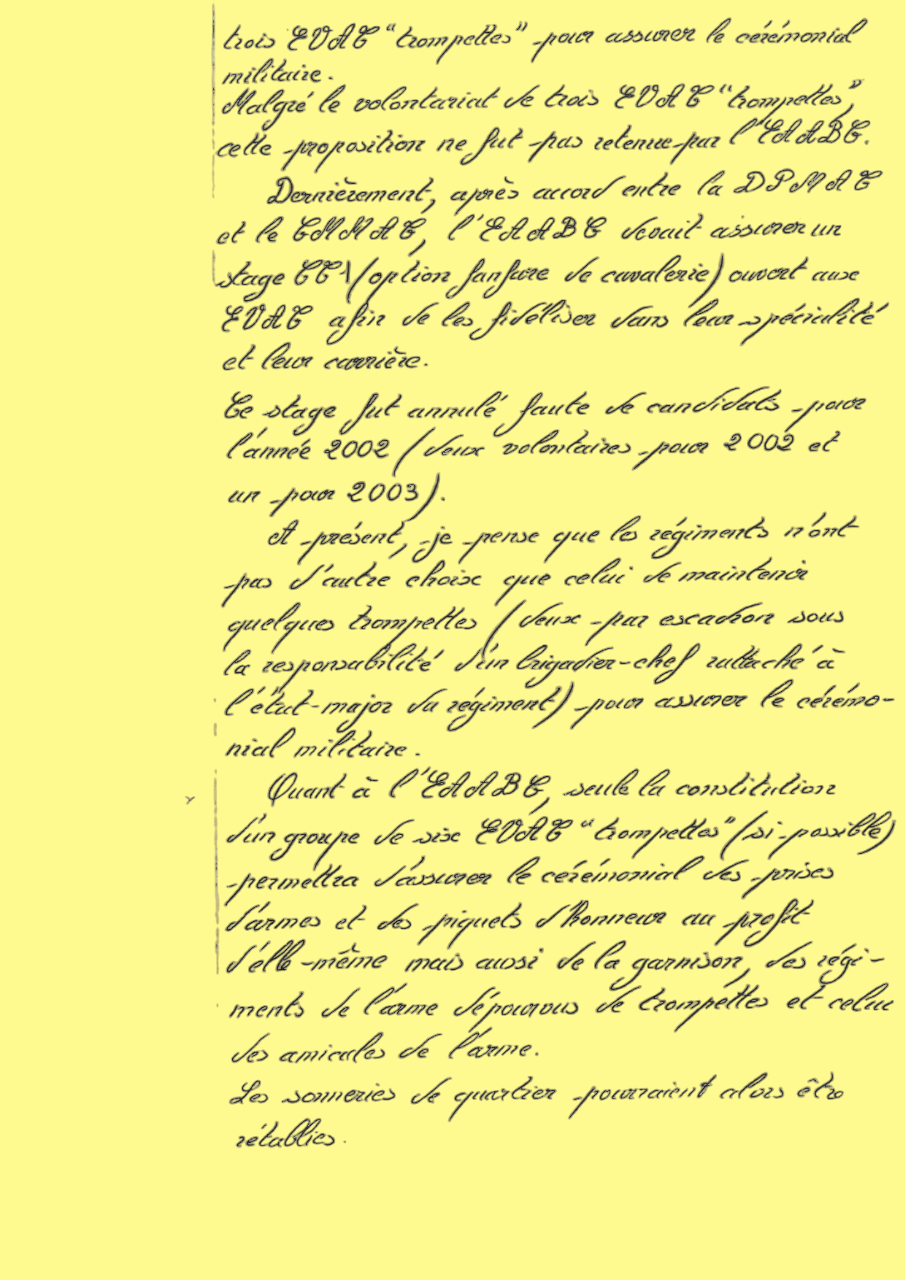 trois EVAT "trompettes" pour assurer le cérémonial
militaire.
Malgré le volontariat de trois EVAT "trompettes",
cette proposition ne fut pas retenue par l'EAABC.
Dernièrement, après accord entre la DPMAT
et le CMMAT, l'EAABC devait assurer un
stage CT1 (option fanfare de cavalerie) ouvert aux
EVAT afin de les fidéliser dans leur spécialité
et leur carrière.
Ce stage fut annulé faute de candidats pour
l'année 2002 (deux volontaires pour 2002 et
un pour 2003).
A présent, je pense que les régiments n'ont
pas d'autre choix que celui de maintenir
quelques trompettes (deux par escadron sous
la responsabilité d'un brigadier-chef rattaché à
l'état-major du régiment) pour assurer le cérémo-
nial militaire.
Quant à l'EAABC, seule la constitution
d'un groupe de six EVAT "trompettes" (si possible)
permettra d'assurer le cérémonial des prises
d'armes et des piquets d'honneur au profit
d'elle-même mais aussi de la garnison, des régi-
ments de l'arme dépourvus de trompettes et celui
des amicales de l'arme.
Les sonneries de quartier pourraient alors être
rétablies.